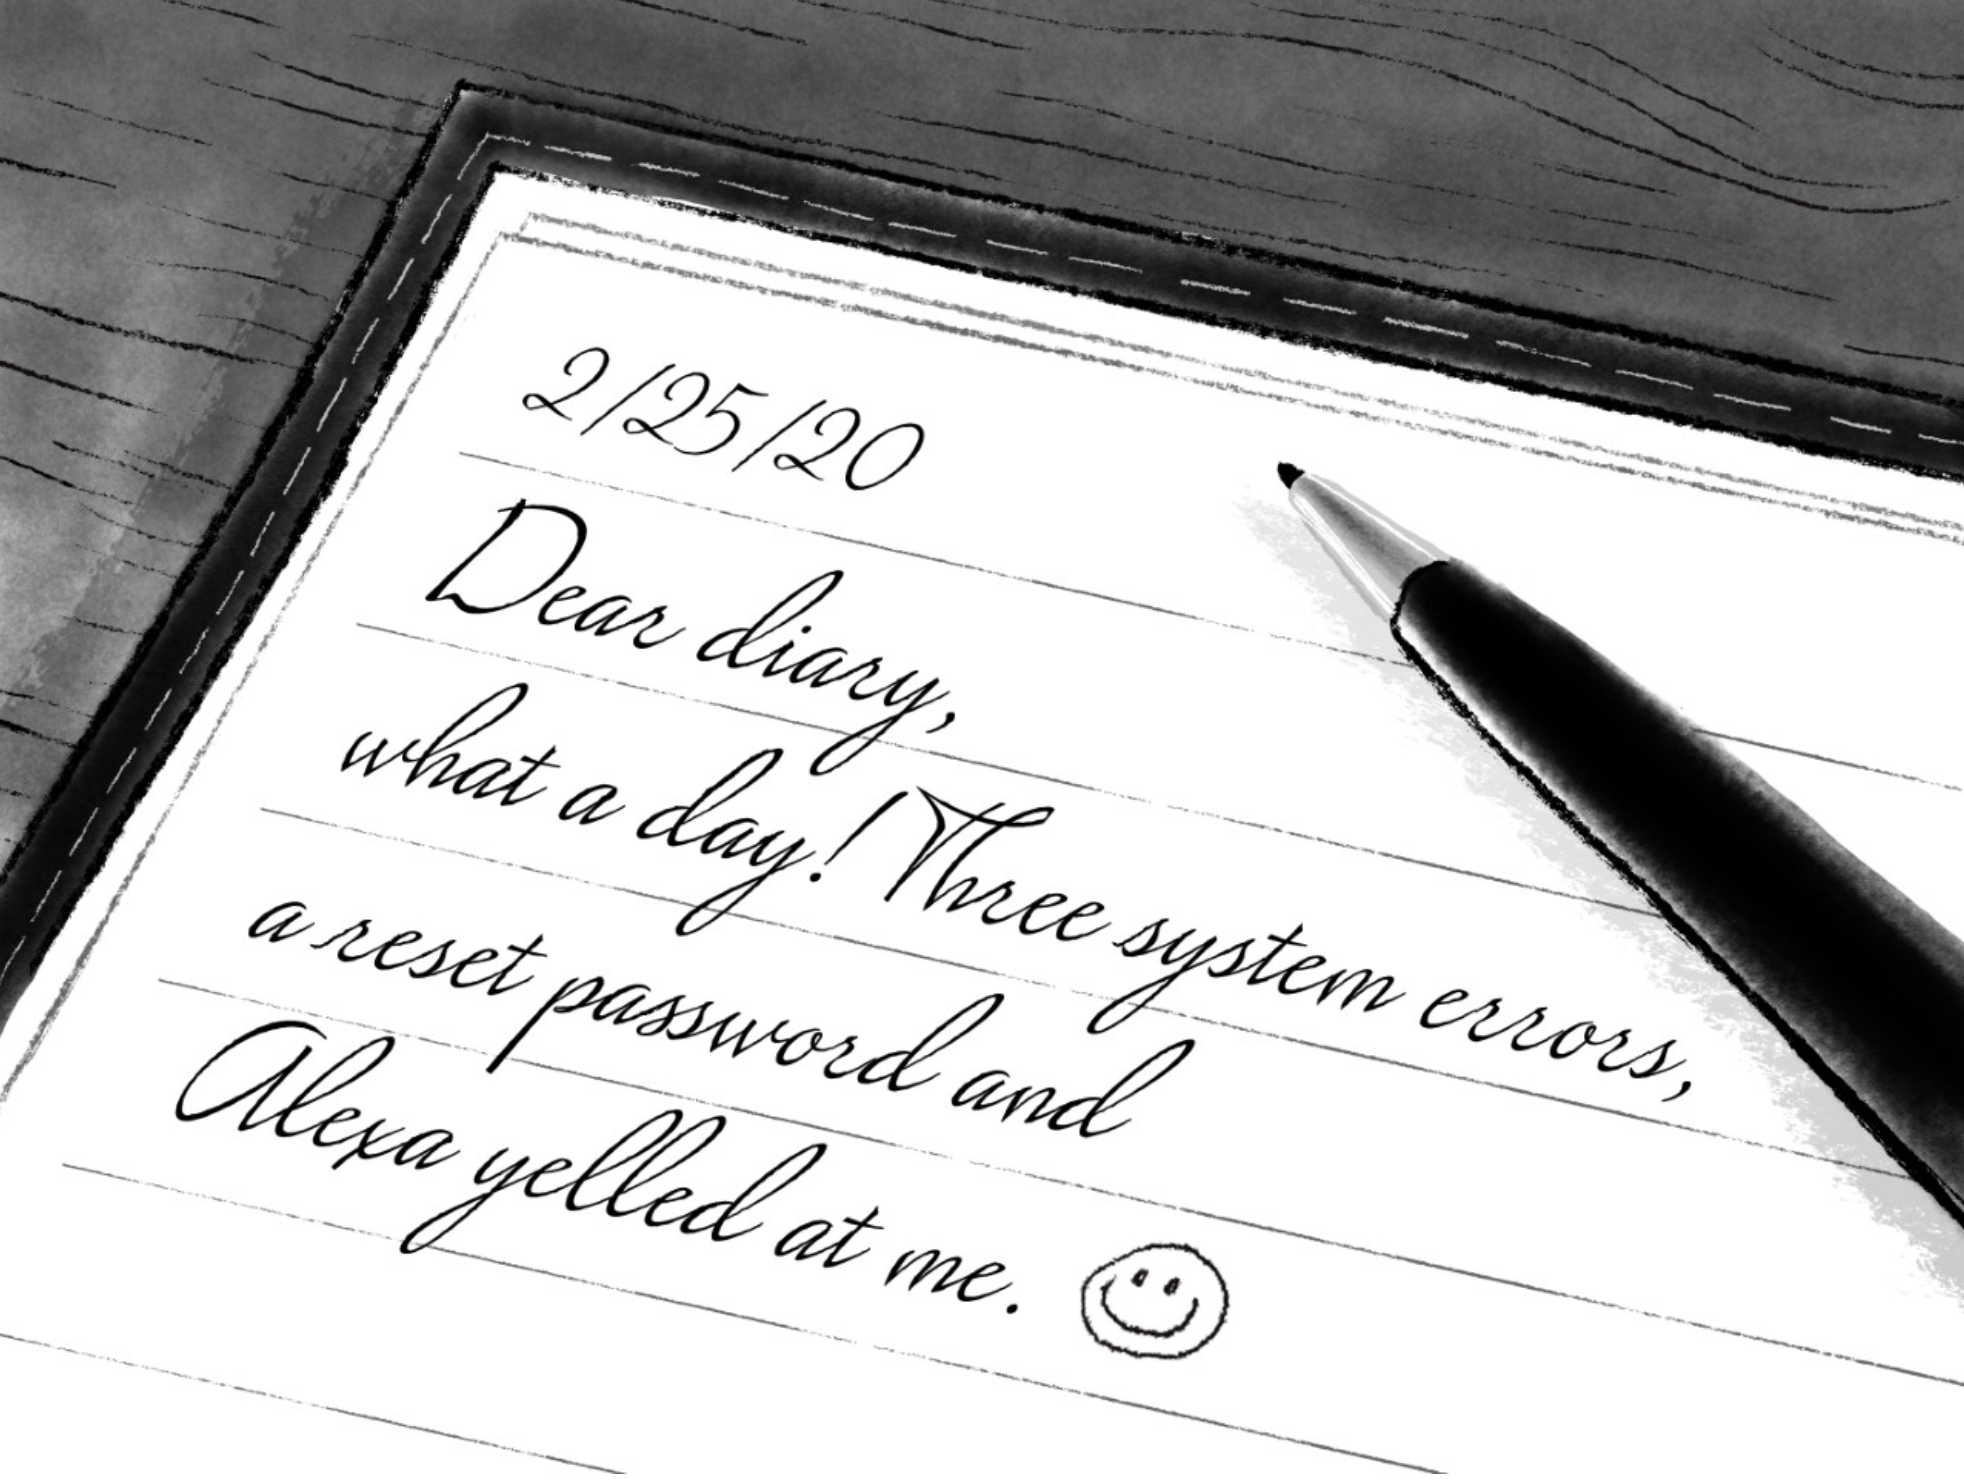 2/25/20
Dear diary,
what a day! Three system errors,
a reset password and
Alexa yelled at me.